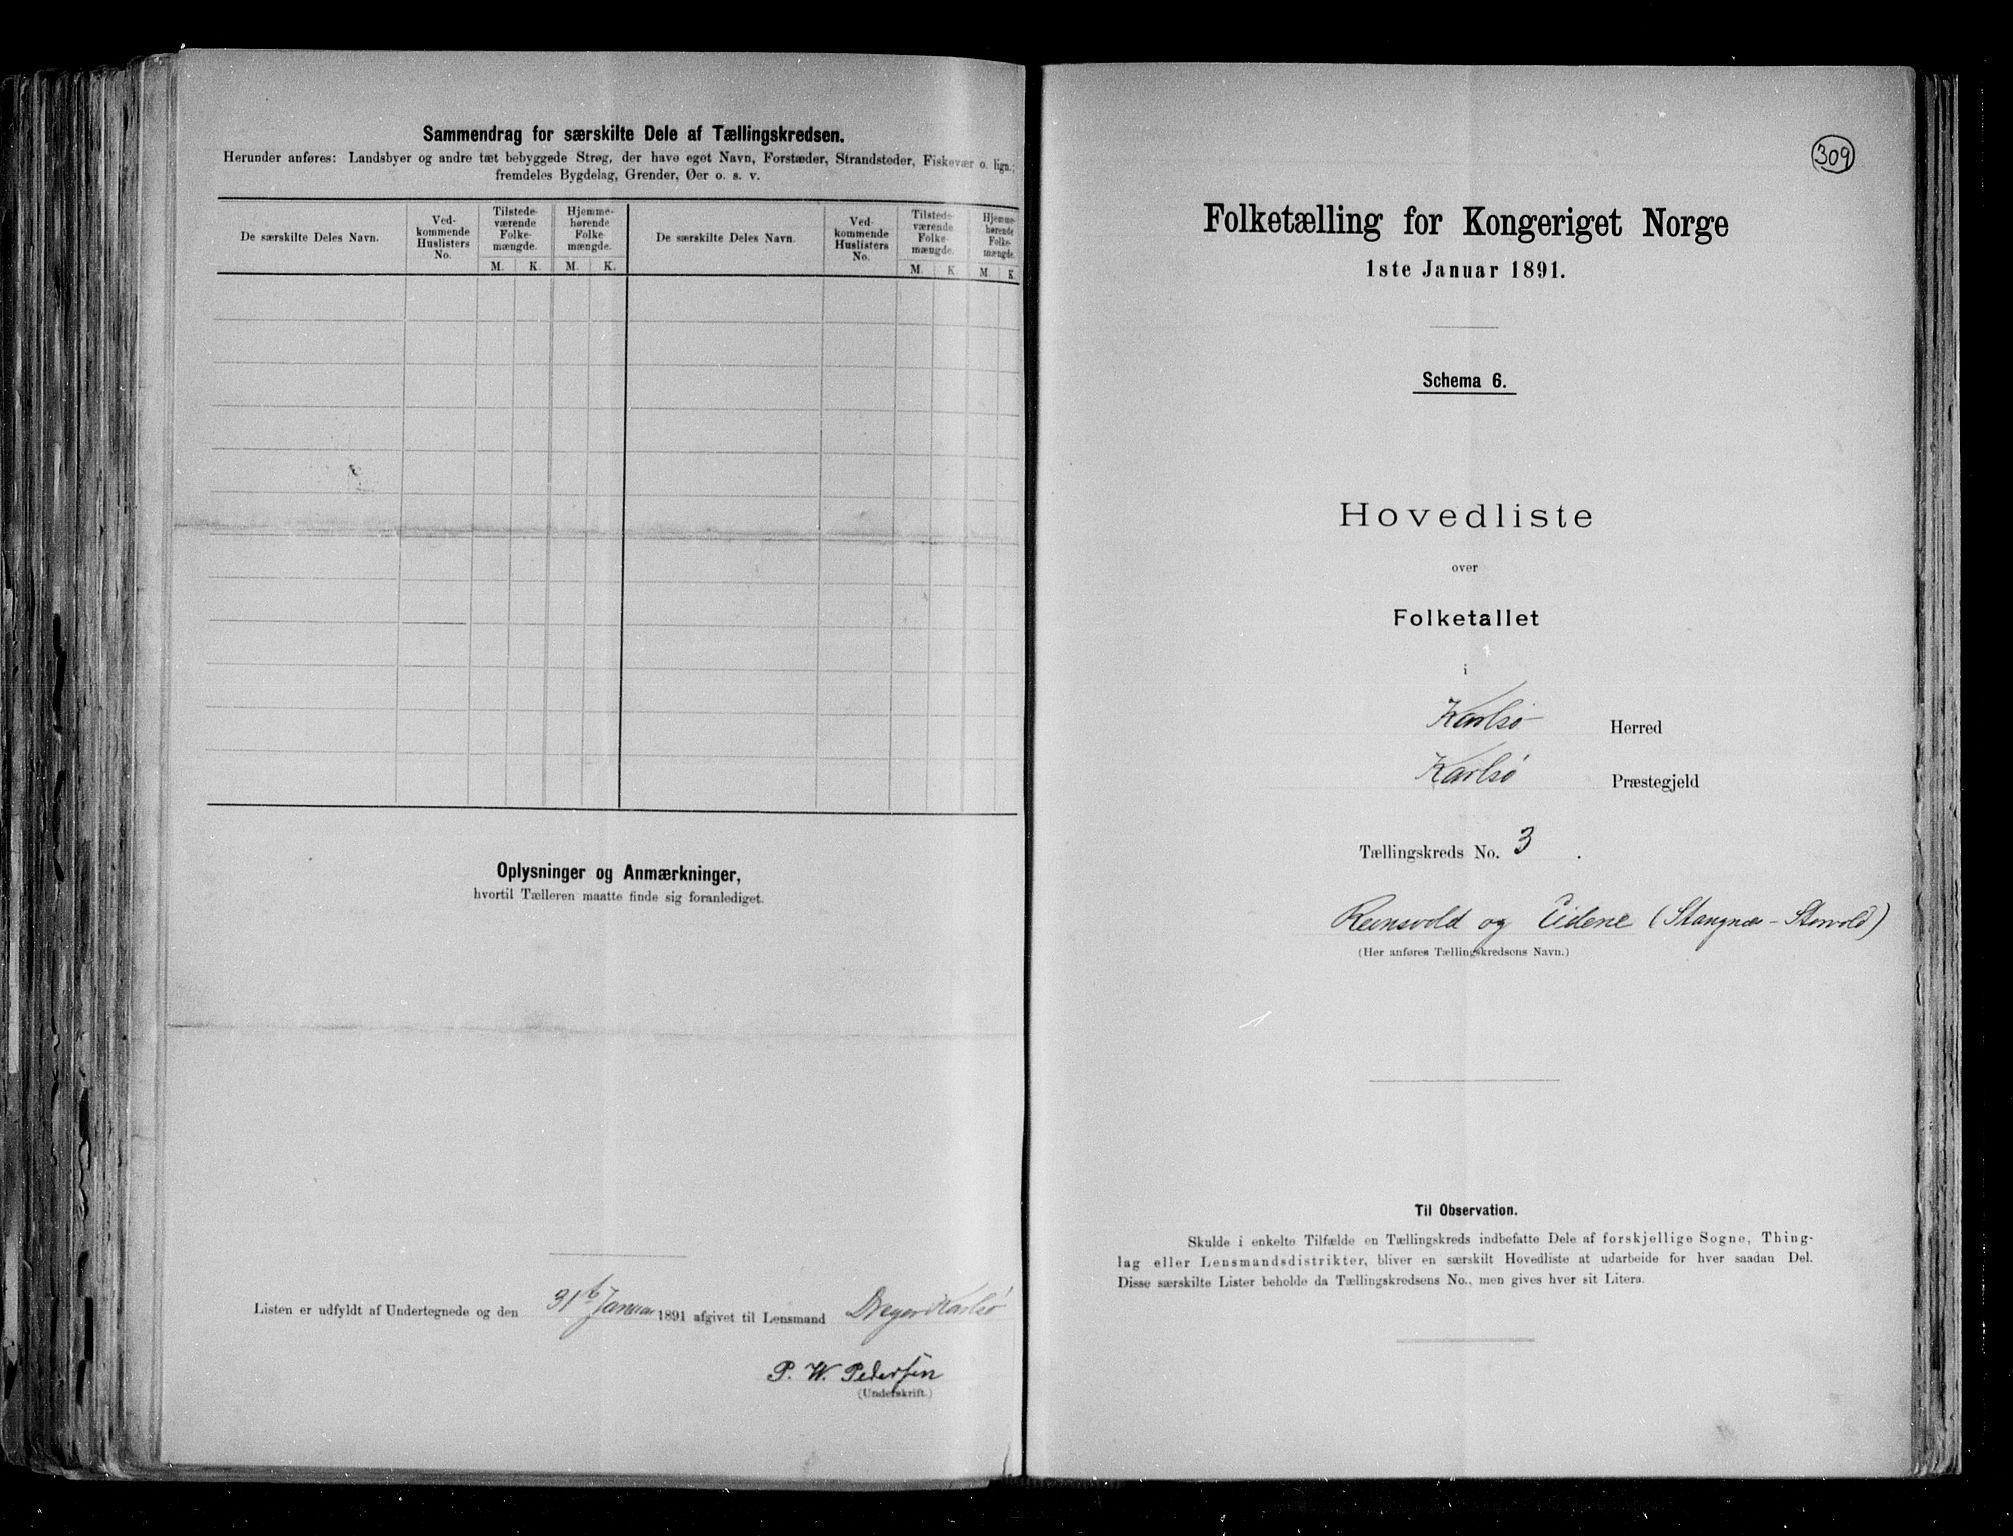 Sammendrag for særskilte Dele af Tællingskredsen.
Herunder anføres: Landsbyer og andre tæt bebyggede Strøg, der have eget Navn, Forstæder, Strandsteder, Fiskevær o. lign.;
fremdeles Bygdelag, Grender, Øer o. s. v.
De særskilte Deles Navn.
Ved-
kommende
Huslisters
No.
Tilstede-
værende
Folke-
mængde.
Hjemme-
hørende
Folke
mængde.
M. K. M. K.
De særskilte Deles Navn.
Ved-
kommende
Huslisters
No.
Tilstede-
værende
Folke-
mængde.
Hjemme-
hørende
Folke-
mængde.
M. K. M. K
Oplysninger og Anmærkninger,
hvortil Tælleren maatte finde sig foranlediget.
Listen er udfyldt af Undertegnede og den 31 Januar 1891 afgivet til Lensmand Dreyer Karlsø
P. W. Pedersen
(Underskrift.)
309
Folketælling for Kongeriget Norge
1ste Januar 1891.
Schema 6.
Hovedliste
over
Folketallet
i
Karlsø Herred
Karlsø Præstegjeld
Tællingskreds No. 3.
Reinsvold og Eidene (Stangnæs-Storvold)
(Her anføres Tællingskredsens Navn.)
Til Observation.
Skulde i enkelte Tilfælde en Tællingskreds indbefatte Dele af forskjellige Sogne, Thing-
lag eller Lensmandsdistrikter, bliver en særskilt Hovedliste at udarbeide for hver saadan Del.
Disse særskilte Lister beholde da Tællingskredsens No., men gives hver sit Litera.